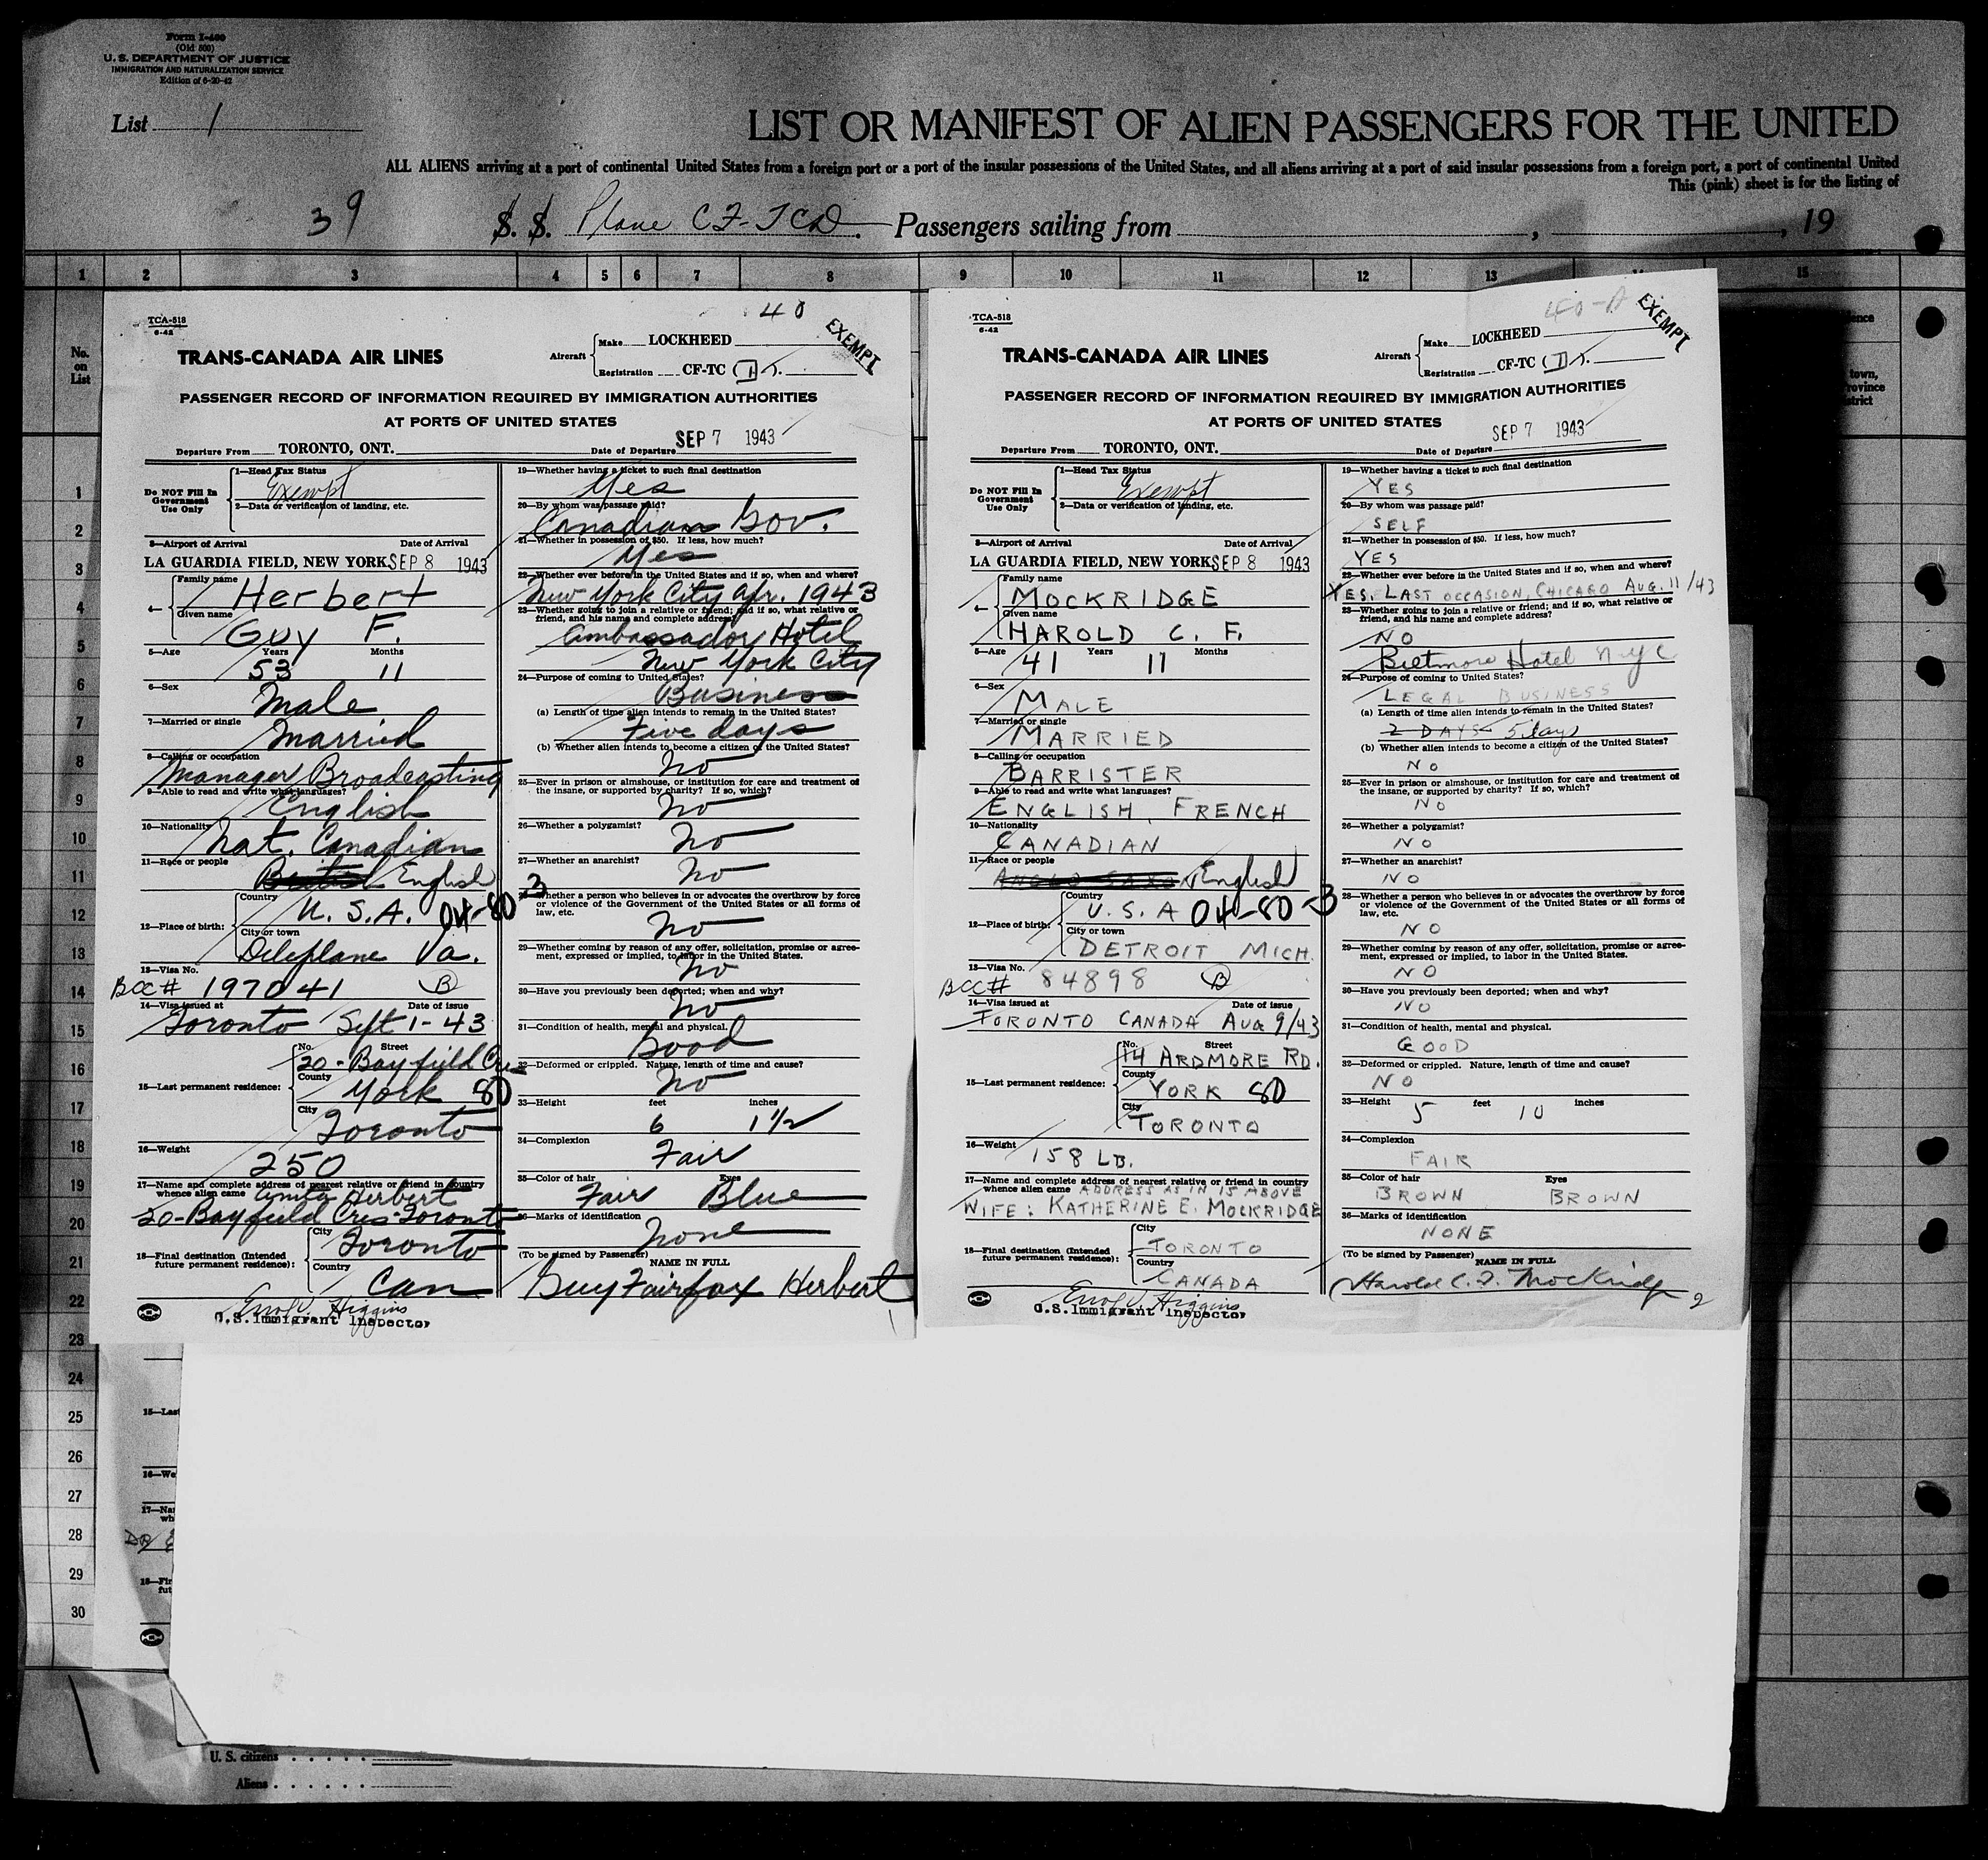 Form I-400
(Old 500)
U. S. DEPARTMENT OF JUSTICE
IMMIGRATION AND NATURALIZATION SERVICE
Edition of 6-20-42
List 1
LIST OR MANIFEST OF ALIEN PASSENGERS FOR THE UNITED
ALL ALIENS arriving at a port of continental United States from a foreign port or a port of the insular possessions of the United States, and all aliens arriving at a port of said insular possessions from a foreign port, a port of continental United
This (pink) sheet is for the listing of
39 S. S. Plane CF-TCD. Passengers sailing from , , 19
1 2 3 4 5 6 7 8 9 10 11 12 13 14 15
No.
on
List
ence
town,
rovince
strict
40
TCA-518
6-42
TRANS-CANADA AIR LINES
Aircraft
Make LOCKHEED
Registration CF-TC (D).
EXEMPT
PASSENGER RECORD OF INFORMATION REQUIRED BY IMMIGRATION AUTHORITIES
AT PORTS OF UNITED STATES
Departure From TORONTO, ONT. Date of Departure SEP 7 1943
Do NOT Fill In
Government
Use Only
1—Head Tax Status
Exempt
2—Data or verification of landing, etc.
3—Airport of Arrival Date of Arrival
LA GUARDIA FIELD, NEW YORK SEP 8 1943
4— Family name
Herbert
Given name
Guy F.
5—Age Years Months
53 11
6—Sex
Male
7—Married or single
Married
8—Calling or occupation
Manager Broadcasting
9—Able to read and write what languages?
English
10—Nationality
Nat. Canadian
11—Race or people
British English
12—Place of birth:
Country
U. S. A. 04-80 3
City or town
Deleplane Va.
13—Visa No.
BCC# 197041 B
14—Visa issued at Date of issue
Toronto Sept 1-43
15—Last permanent residence:
No. Street
20 - Bayfield Cres
County
York 80
City
Toronto
16—Weight
250
17—Name and complete address of nearest relative or friend in country
whence alien came Anita Herbert
20-Bayfield Cres-Toronto
18—Final destination (Intended
future permanent residence):
City
Toronto
Country
Can
Errol V. Higgins
U.S. Immigrant Inspector
19—Whether having a ticket to such final destination
Yes
20—By whom was passage paid?
Canadian Gov.
21—Whether in possession of $50. If less, how much?
Yes
22—Whether ever before in the United States and if so, when and where?
New York City Apr. 1943
23—Whether going to join a relative or friend; and if so, what relative or
friend, and his name and complete address?
Ambassador Hotel
New York City
24—Purpose of coming to United States?
Business
(a) Length of time alien intends to remain in the United States?
Five days
(b) Whether alien intends to become a citizen of the United States?
No
25—Ever in prison or almshouse, or institution for care and treatment of
the insane, or supported by charity? If so, which?
No
26—Whether a polygamist?
No
27—Whether an anarchist?
No
28—Whether a person who believes in or advocates the overthrow by force
or violence of the Government of the United States or all forms of
law, etc.
No
29—Whether coming by reason of any offer, solicitation, promise or agree-
ment, expressed or implied, to labor in the United States.
No
30—Have you previously been deported; when and why?
No
31—Condition of health, mental and physical.
Good
32—Deformed or crippled. Nature, length of time and cause?
No
33—Height feet inches
6 1 1/2
34—Complexion
Fair
35—Color of hair Eyes
Fair Blue
36—Marks of identification
None
(To be signed by Passenger) NAME IN FULL
Guy Fairfax Herbert
1
40-A
TCA-518
6-42
TRANS-CANADA AIR LINES
Aircraft
Make LOCKHEED
Registration CF-TC (D).
EXEMPT
PASSENGER RECORD OF INFORMATION REQUIRED BY IMMIGRATION AUTHORITIES
AT PORTS OF UNITED STATES
Departure From TORONTO, ONT. Date of Departure SEP 7 1943
Do NOT Fill In
Government
Use Only
1—Head Tax Status
Exempt
2—Data or verification of landing, etc.
3—Airport of Arrival Date of Arrival
LA GUARDIA FIELD, NEW YORK SEP 8 1943
4— Family name
MOCKRIDGE
Given name
HAROLD C. F.
5—Age Years Months
41 11
6—Sex
MALE
7—Married or single
MARRIED
8—Calling or occupation
BARRISTER
9—Able to read and write what languages?
ENGLISH, FRENCH
10—Nationality
CANADIAN
11—Race or people
ANGLO SAXON English
12—Place of birth:
Country
U. S. A 04-80-3
City or town
DETROIT MICH.
13—Visa No.
BCC# 84898 B
14—Visa issued at Date of issue
TORONTO CANADA AUG 9/43
15—Last permanent residence:
No. Street
14 ARDMORE RD.
County
YORK 80
City
TORONTO
16—Weight
158 LB.
17—Name and complete address of nearest relative or friend in country
whence alien came ADDRESS AS IN 15 ABOVE
WIFE: KATHERINE E. MOCKRIDGE
18—Final destination (Intended
future permanent residence):
City
TORONTO
Country
CANADA
Errol V. Higgins
U.S. Immigrant Inspector
19—Whether having a ticket to such final destination
YES
20—By whom was passage paid?
SELF
21—Whether in possession of $50. If less, how much?
YES
22—Whether ever before in the United States and if so, when and where?
YES. LAST OCCASION, CHICAGO AUG. 11/43
23—Whether going to join a relative or friend; and if so, what relative or
friend, and his name and complete address?
NO
Biltmore Hotel NYC
24—Purpose of coming to United States?
LEGAL BUSINESS
(a) Length of time alien intends to remain in the United States?
2 DAYS 5 days
(b) Whether alien intends to become a citizen of the United States?
NO
25—Ever in prison or almshouse, or institution for care and treatment of
the insane, or supported by charity? If so, which?
NO
26—Whether a polygamist?
NO
27—Whether an anarchist?
NO
28—Whether a person who believes in or advocates the overthrow by force
or violence of the Government of the United States or all forms of
law, etc.
NO
29—Whether coming by reason of any offer, solicitation, promise or agree-
ment, expressed or implied, to labor in the United States.
NO
30—Have you previously been deported; when and why?
NO
31—Condition of health, mental and physical.
GOOD
32—Deformed or crippled. Nature, length of time and cause?
NO
33—Height 5 feet 10 inches
34—Complexion
FAIR
35—Color of hair Eyes
BROWN BROWN
36—Marks of identification
NONE
(To be signed by Passenger) NAME IN FULL
Harold C. F. Mockridge
2
1
2
3
4
5
6
7
8
9
10
11
12
13
14
15
16
17
18
19
20
21
22
23
24
25
26
27
28
29
30
15—Last
16—We
17—Na
wh
18—Fin
fut
U. S. citizens
Aliens